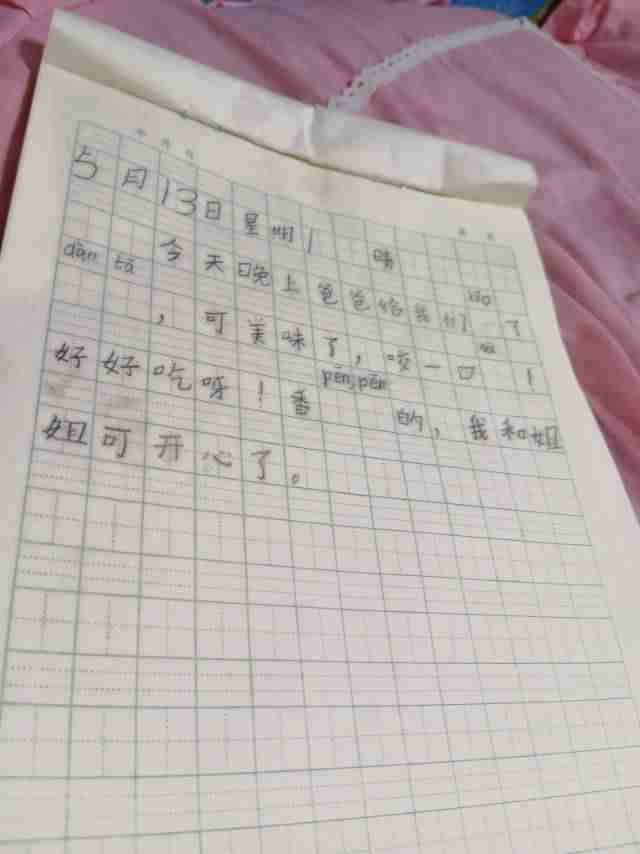 5月13日 星期1 晴
今天晚上爸爸给我们 了
dàn tà ，可美味了，咬一口 ！
好好吃呀！香 pēn pēn 的，我和姐
姐可开心了。